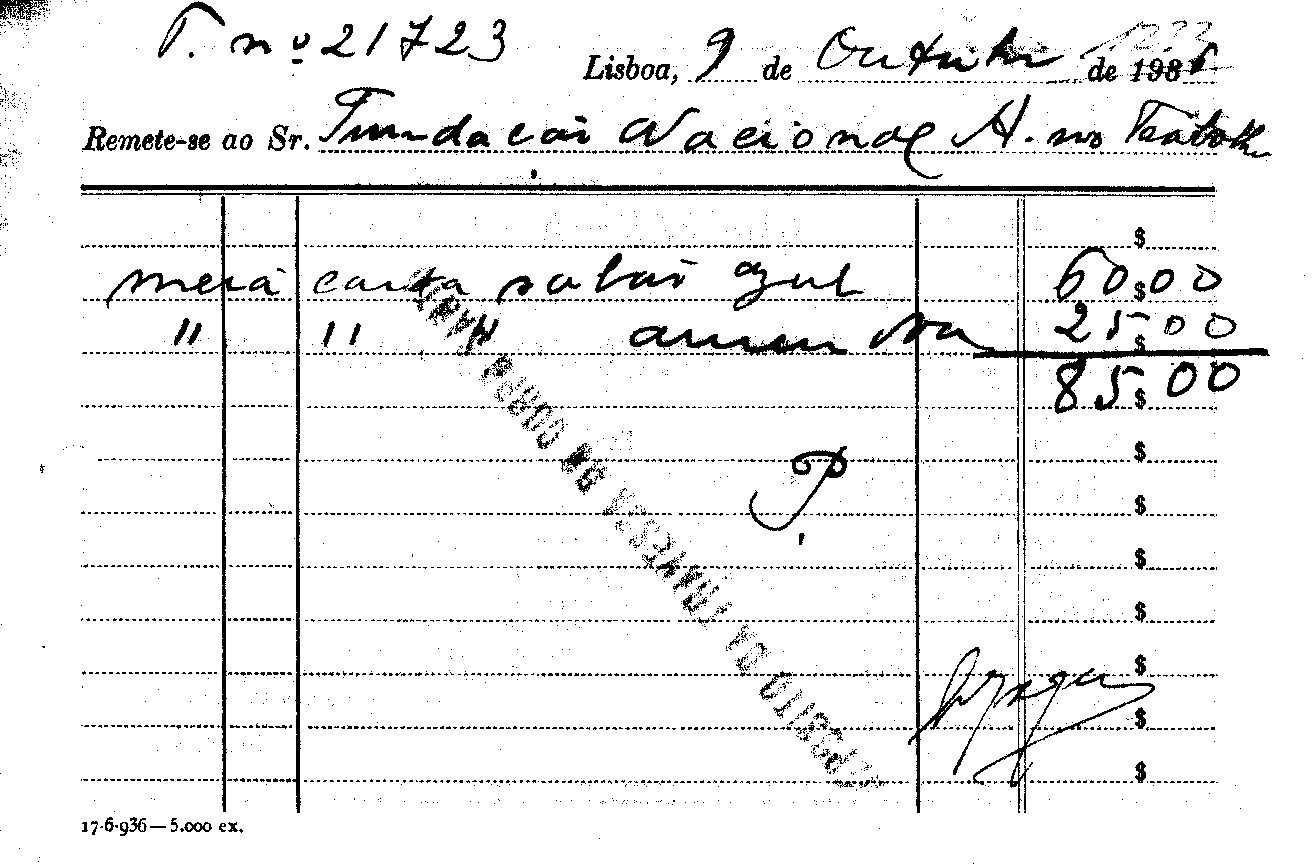 T. nº 21723
Lisboa, 9 de Outubro de 193
Remete-se ao Sr. Fundação Nacional A. no Trabalho
$
meia caixa sabão azul 60$00
" " " 25$00
85$00
$
$
$
$
$
$
$
17-6-936—5.000 ex.